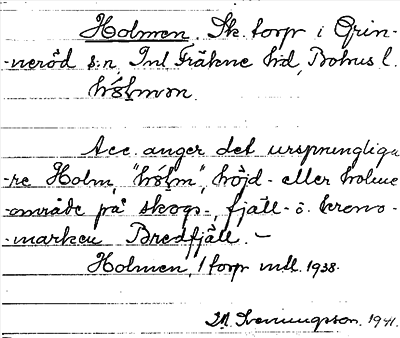 Holmen. Sk. torp i Grin-
-neröd s:n, Inl Fräkne hd, Bohus l.
hólmən.
Acc. anger det ursprungliga
-re Holm, "hólm", höjd- eller holme
-område på skogs-, fjäll- o. krono-
-marken Bredfjäll. —
Holmen, 1 torp mtl. 1938.
Iveningsson. 1941.